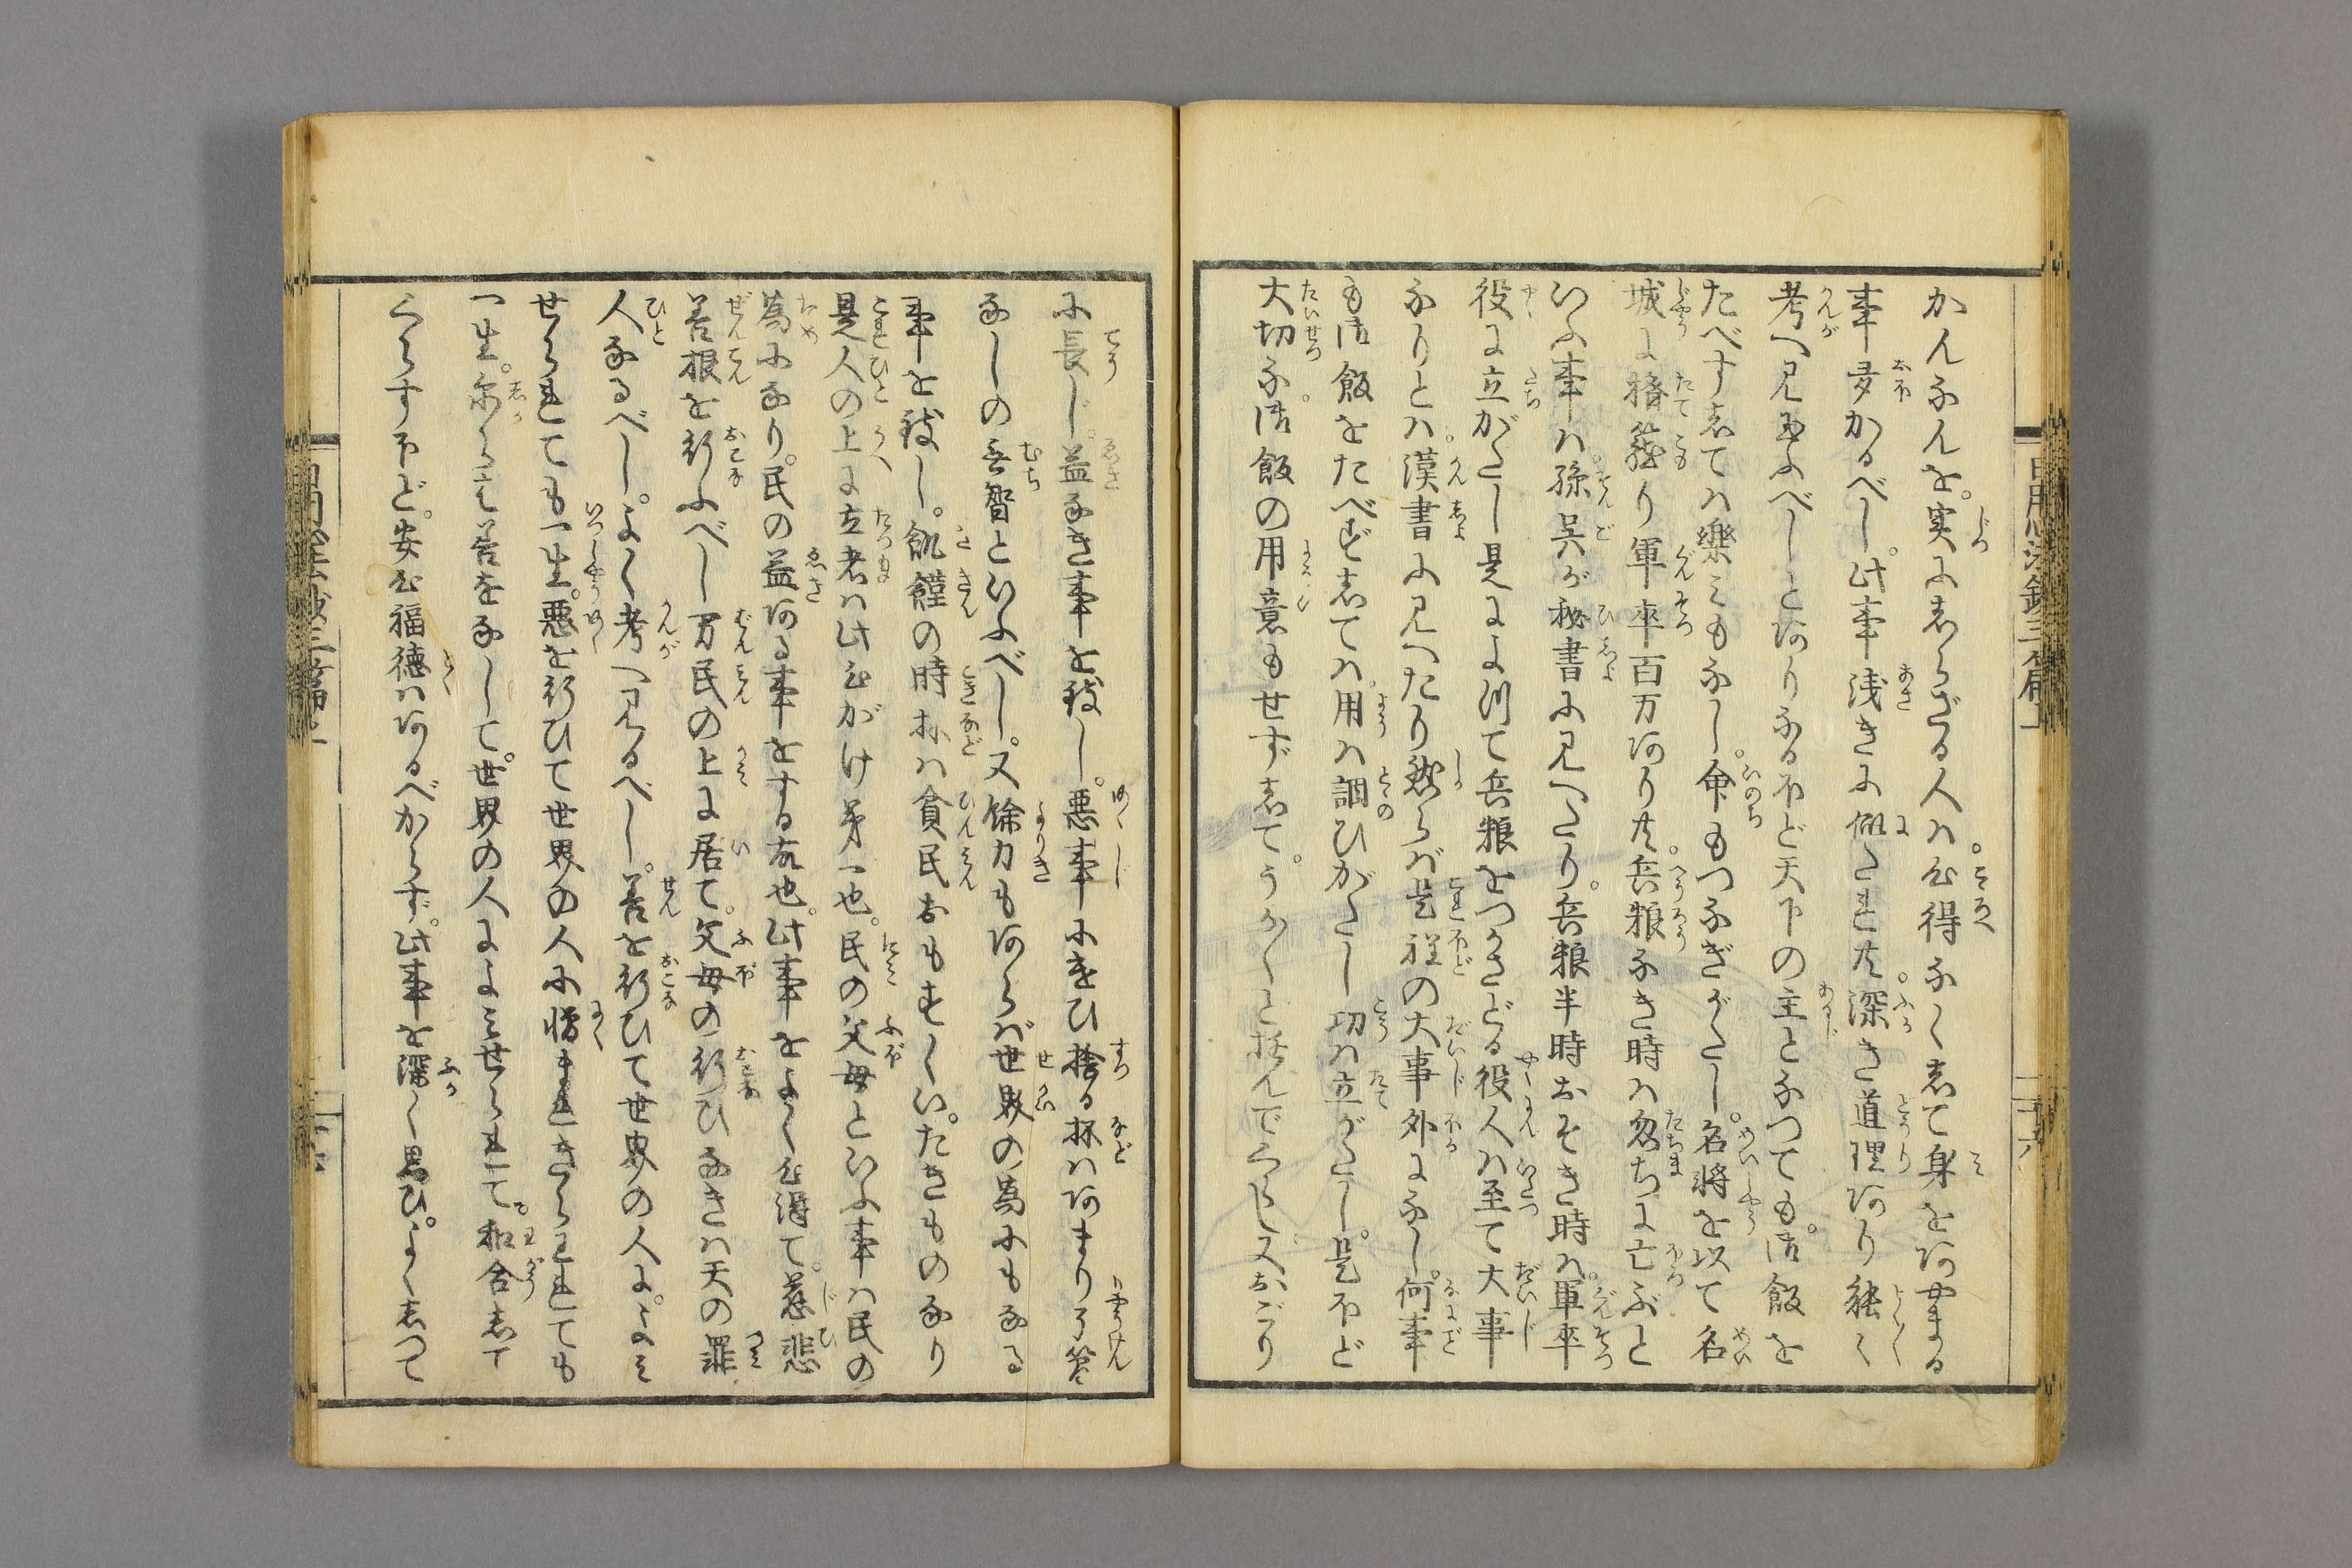 かんなんを。実に志らざる人ハ。心得なく志て身をあやまる
事多かるべし。此事浅きに似たれ共。深き道理あり能く
考へ見給ふべしとありなるほど天下の主となつても。御飯を
たべす志てハ楽ミもなし。命もつなぎがたし。名将を以て名
城に楯籠り軍卒百万あり共。兵粮なき時ハ忽ちに亡ぶと
いふ事ハ。孫呉が秘書に見へたり。兵粮半時おそき時ハ。軍卒
役に立がたし是によつて兵粮をつかさどる役人ハ至て大事
なりとハ。漢書に見へたり然らバ是程の大事外になし。何事
も御飯をたべず志てハ。用ハ調ひがたし功ハ立がたし。是ほど
大切な。御飯の用意もせず志て。うか〳〵と遊んでくらし又おごり
に長じ。益なき事を致し。悪事に遣ひ捨る抔ハあまり了簡
なしの無智といふべし。又余力もあらバ世界の為にもなる
事を致し。飢饉の時抔ハ貧民おもすくい。たきものなり
是人の上に立者ハ此心がけ第一也。民の父母といふ事ハ民の
為になり。民の益ある事をする故也。此事をよく心得て。慈悲
善根を行ふべし万民の上に居て。父母の行ひなきハ天の罪
人なるべし。よく考へ見るべし。善を行ひて世界の人に。よミ
せられても一生。悪を行ひて世界の人に憎まれきらわれても
一生。尓らハ善をなして。世界の人によミせられて。和合志て
くらすほど。安心福徳ハあるべからず。此事を深く思ひ。よく志つて